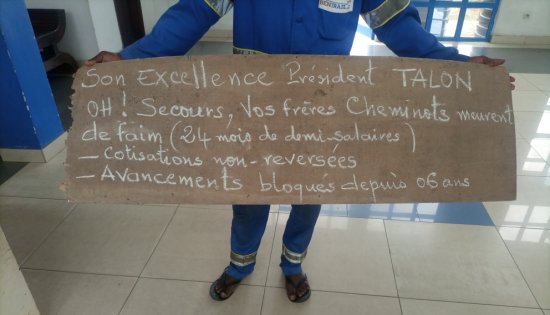 BENIRAIL
Son Excellence Président TALON
OH! Secours, Vos frères Cheminots meurent
de faim (24 mois de demi-salaires)
– Cotisations non-reversées
– Avancements bloqués depuis 06 ans